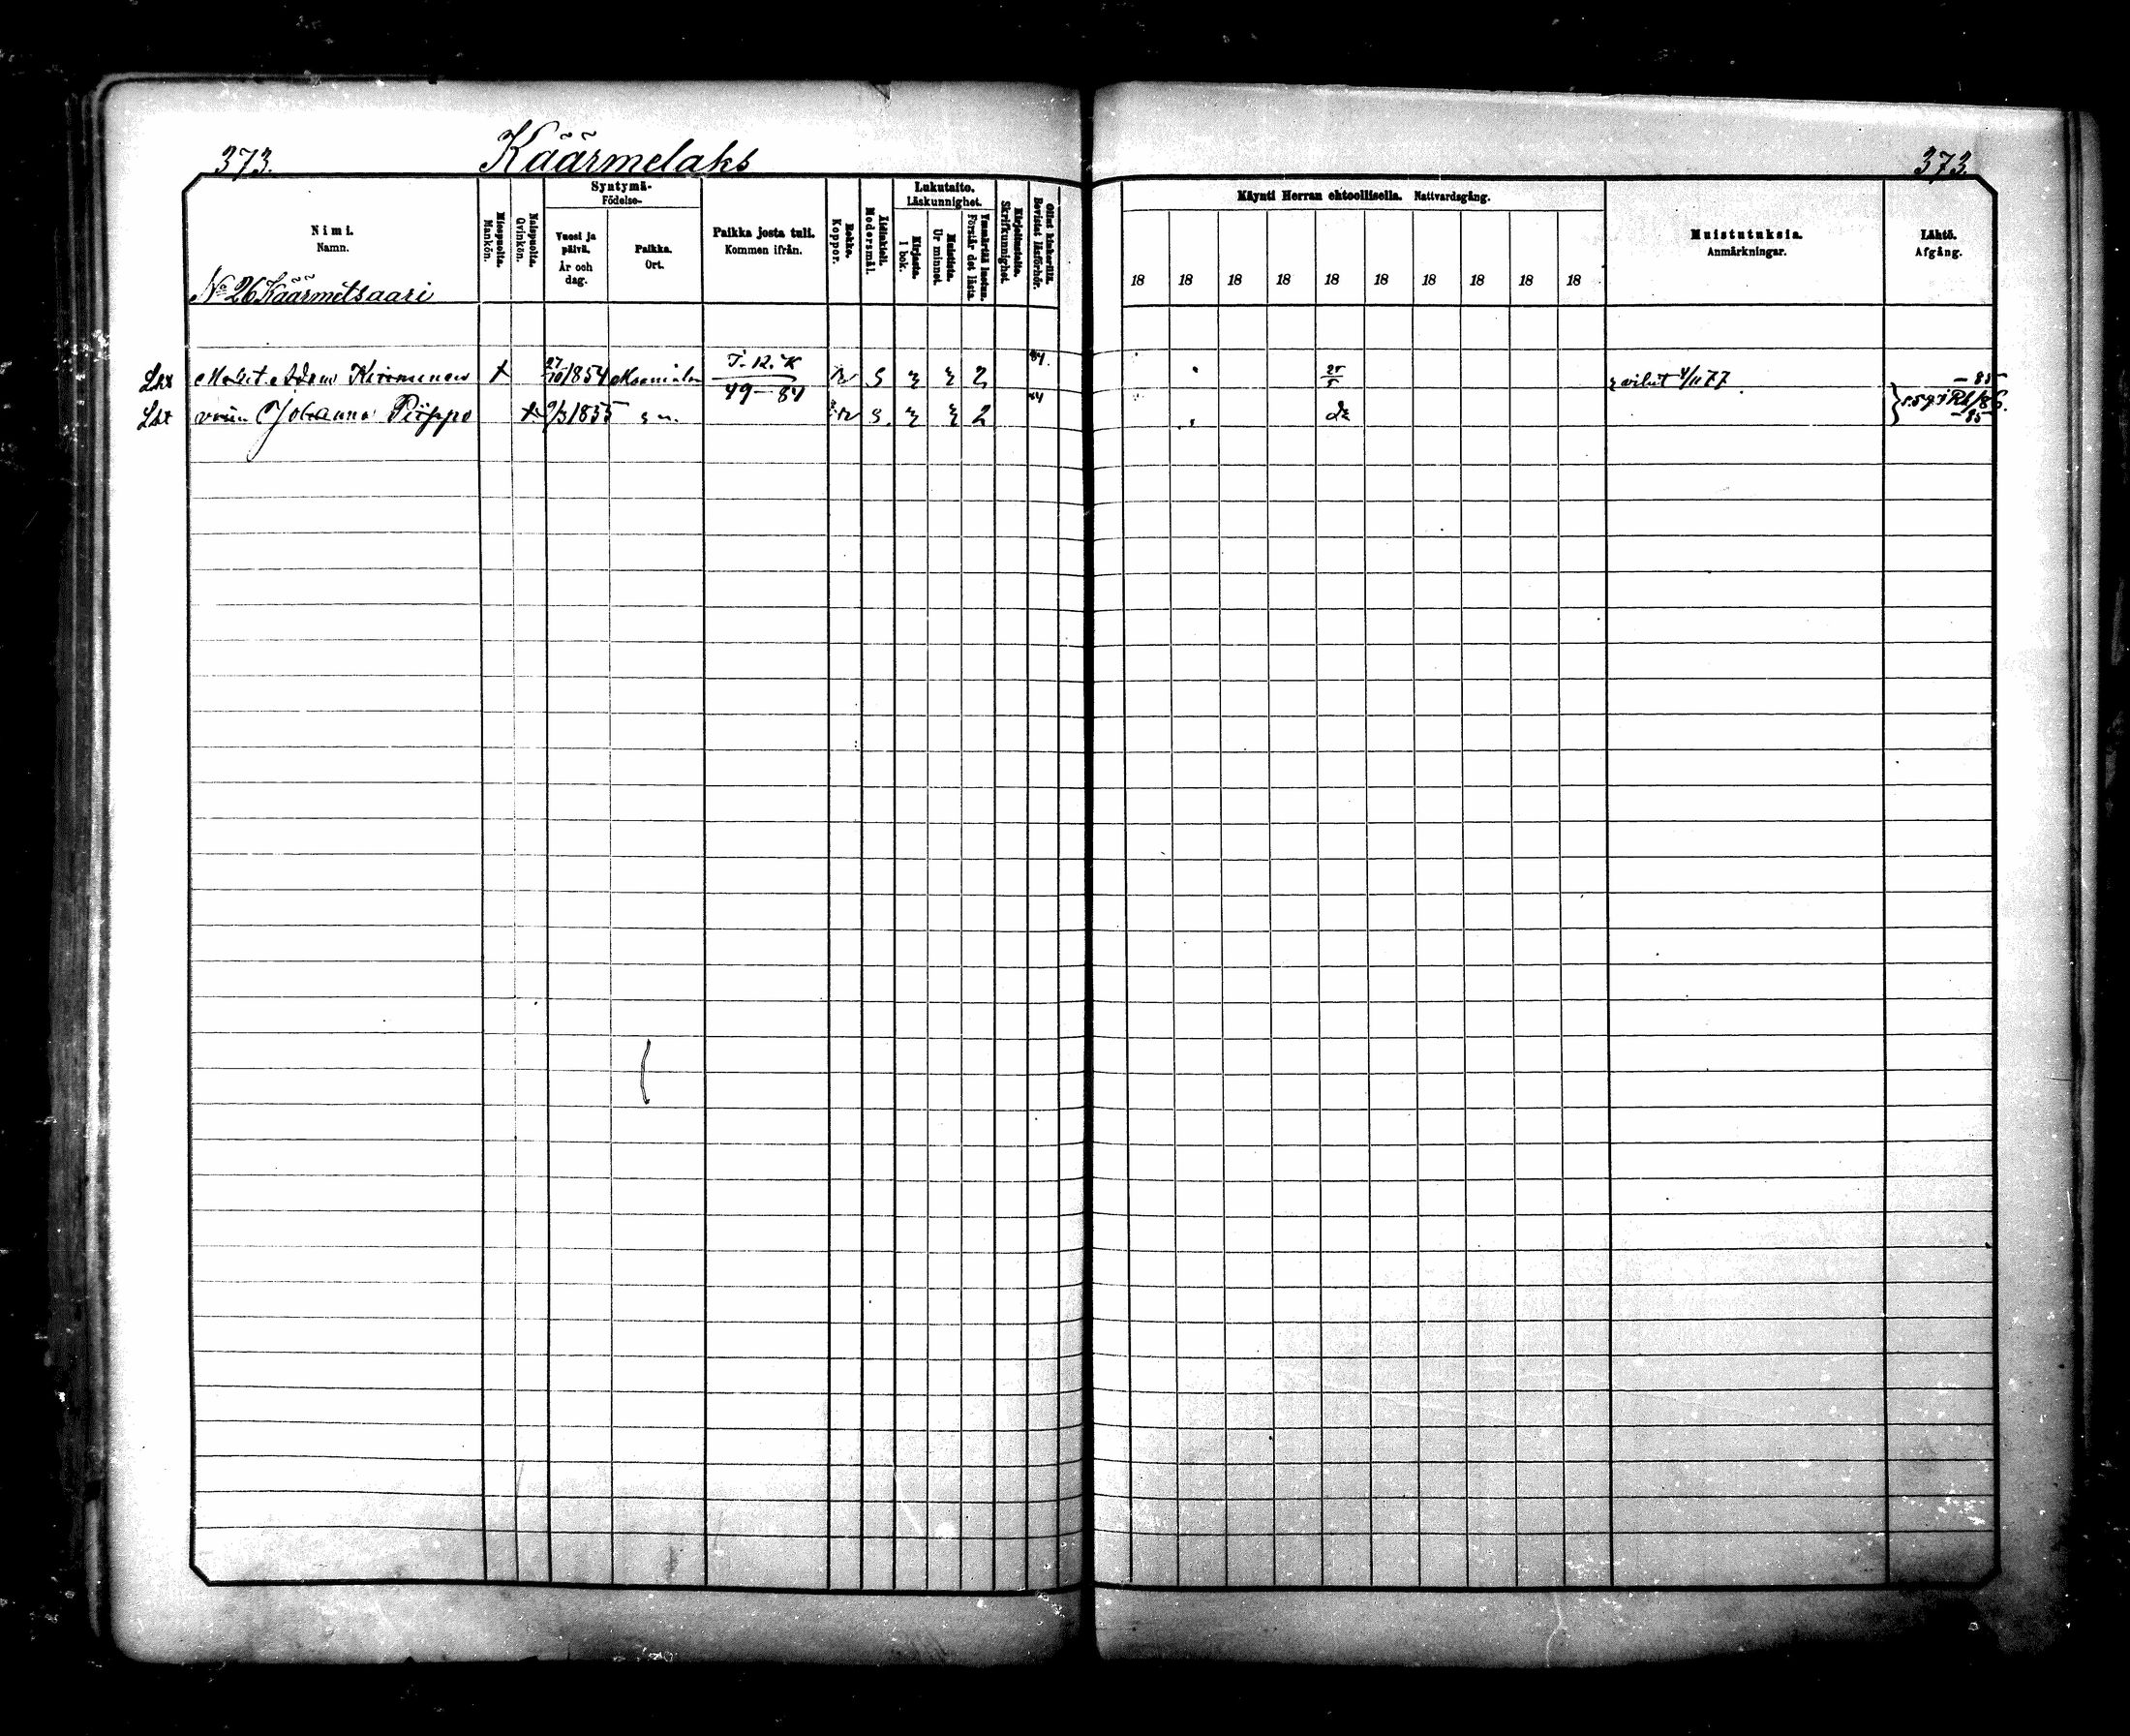 373. Käärmelaks 373.
Nimi. Namn.
Miespuolta. Mankön.
Naispuolta. Qvinkön.
Syntymä- Födelse-
Vuosi ja päivä. År och dag.
Paikka. Ort.
Paikka josta tuli. Kommen ifrån.
Rokko. Koppor.
Äidinkieli. Modersmål.
Lukutaito. Läskunnighet.
Kirjasta. I bok.
Muistista. Ur minnet.
Ymmärtää luetun. Förstår det lästa.
Kirjoitustaito. Skrifkunnighet.
Ollut lukusilla. Bevistat läsförhör.
Käynti Herran ehtoollisella. Nattvardsgång.
18 18 18 18 18 18 18 18 18 18
Muistutuksia. Anmärkningar.
Lähtö. Afgång.
No 26 Käärmetsaari
Adam 27/10 1854 T. 12. K 2 84 25/5 4/11 77 - 85
49-84
Johanna Piippo 9/3 1855 s 2 84
- 85